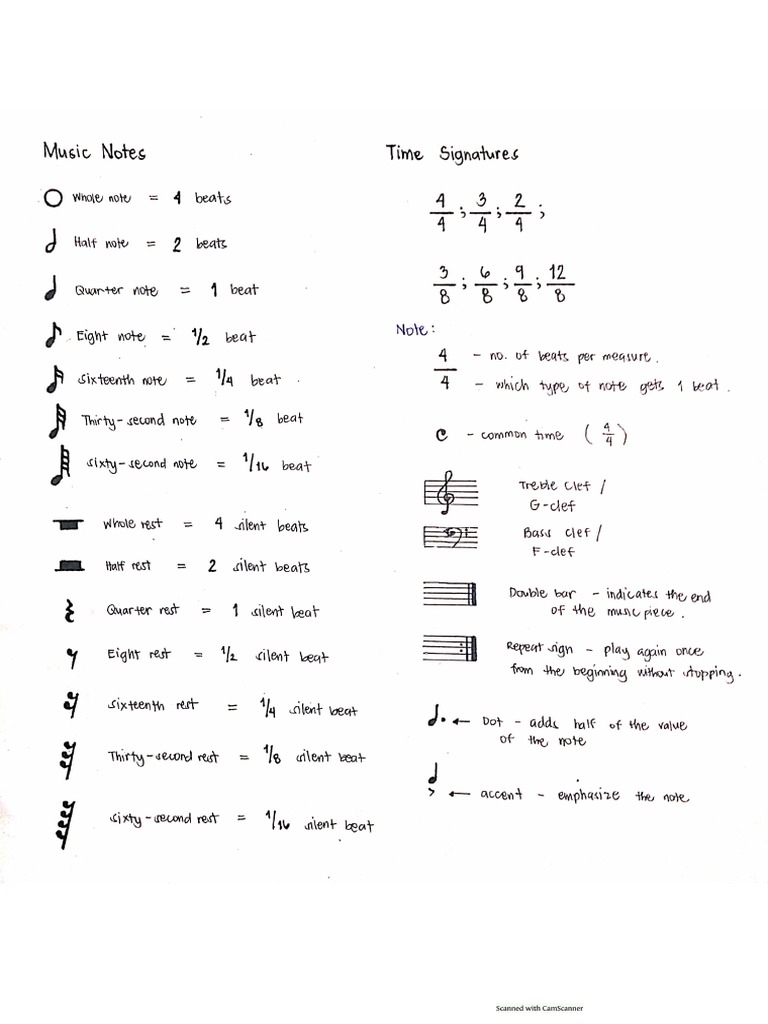 Music Notes
Whole note = 4 beats
Half note = 2 beats
Quarter note = 1 beat
Eight note = 1/2 beat
Sixteenth note = 1/4 beat
Thirty-second note = 1/8 beat
Sixty-second note = 1/16 beat
Whole rest = 4 silent beats
Half rest = 2 silent beats
Quarter rest = 1 silent beat
Eight rest = 1/2 silent beat
Sixteenth rest = 1/4 silent beat
Thirty-second rest = 1/8 silent beat
Sixty-second rest = 1/16 silent beat
Time Signatures
4/4 ; 3/4 ; 2/4 ;
3/8 ; 6/8 ; 9/8 ; 12/8
Note:
4 - no. of beats per measure.
4 - which type of note gets 1 beat.
C - common time (4/4)
Treble Clef /
G-clef
Bass clef /
F-clef
Double bar - indicates the end
of the music piece.
Repeat sign - play again once
from the beginning without stopping.
← Dot - adds half of the value
of the note
> ← accent - emphasize the note
Scanned with CamScanner